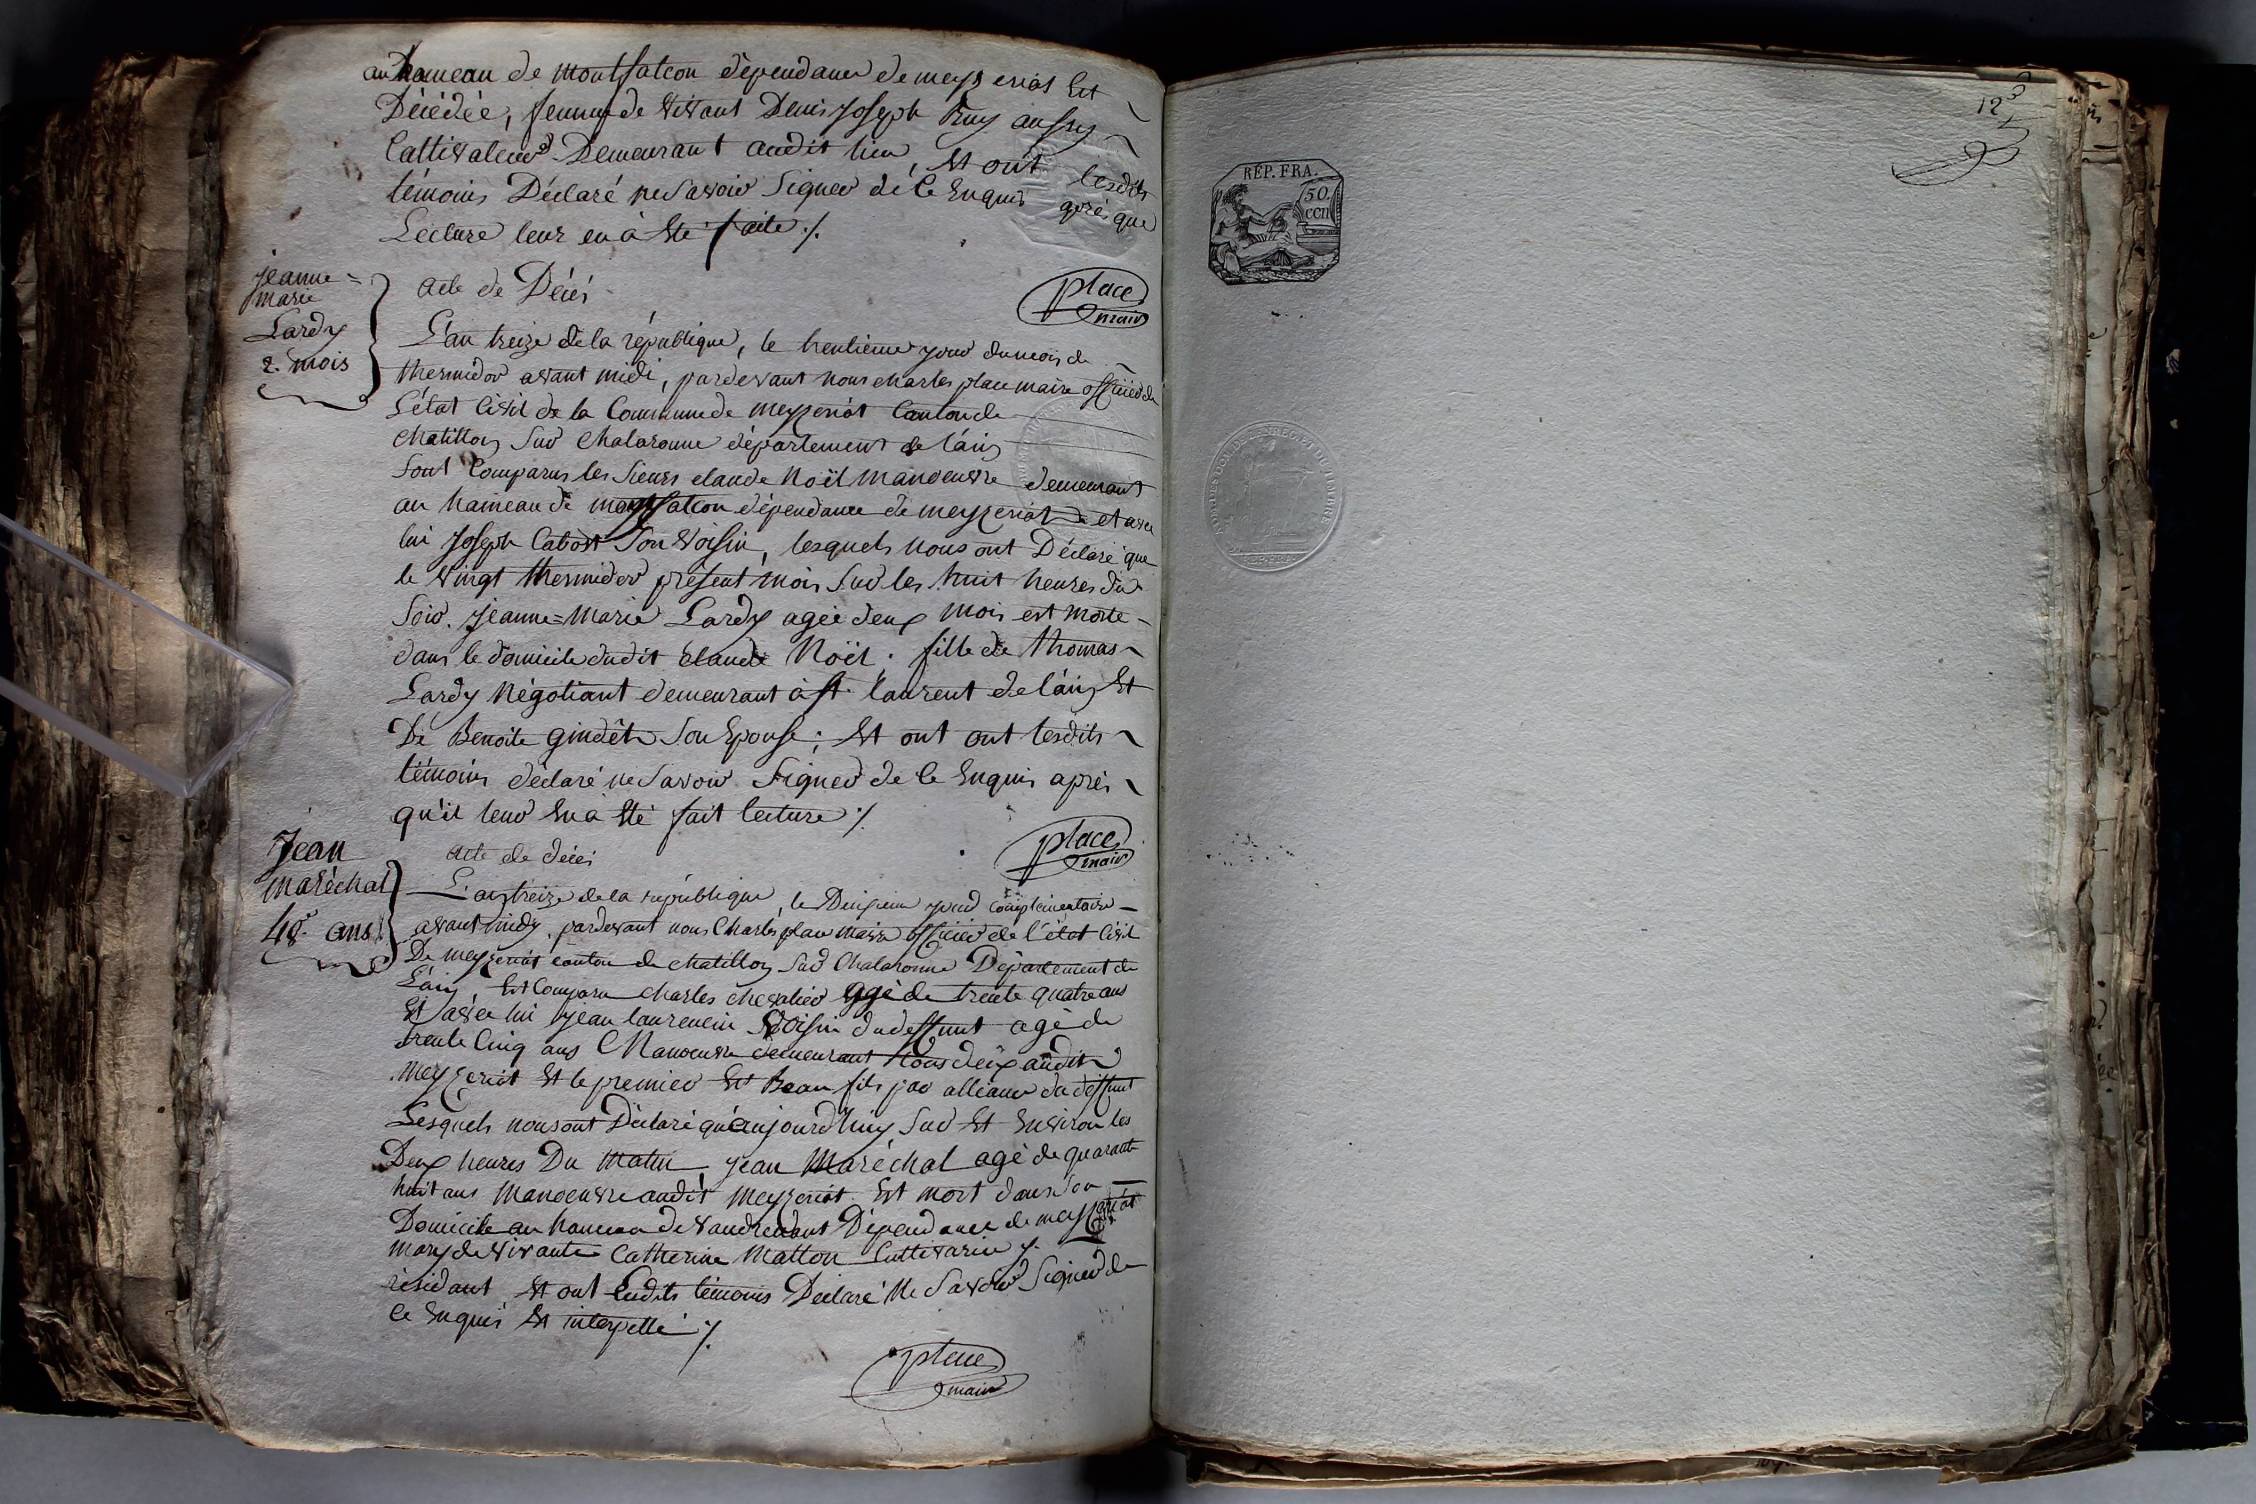 au hameau de montfalcon dépendance de meyzeriat Est
Décédée, femme de vivant Denis Joseph Ruy aussy
Cultivateur Demeurant audit lieu, Et ont lesdits
témoins Déclaré ne Savoir Signer dé Ce Enquis après que
Lecture leur en à Eté faite ./.
jeanne=
marie
Lardy
2. mois
acte de Décés
place
maire
L'an treize de la république, le trentième jour du mois de
thermidor avant midi, pardevant nous charles place maire officier de
L'état Civil de la Commune de meyzeriat Canton de
Chatillon Sur Chalaronne département de l'ain
Sont Comparus les Sieurs claude Noël manoeuvre demeurant
au hameau de montfalcon dépendance de meyzeriat et avec
lui Joseph Cabost Son voisin, lesquels nous ont Déclaré que
le vingt thermidor présent mois Sur les huit heures du
Soir. Jeanne=Marie Lardy agée deux mois est morte
dans le domicile dudit Claude Noël. fille de thomas
Lardy Négotiant demeurant à st. laurent de l'ain Et
De Benoite gindet Son Epouse; Et ont ont lesdits
témoins déclaré ne Savoir Signer de Ce Enquis après
qu'il leur En a Eté fait lecture ./.
Jean
maréchal
48. ans
acte de décés
place
maire
L'an treize de la république, le Deuxieme jour complémentaire
avant midy, pardevant nous Charles place maire officier de l'état Civil
De meyzeriat canton de chatillon Sur Chalaronne Département de
L'ain Est Comparu charles chevalier agé de trente quatre ans
Et avec lui jean laurencin voisin du deffunt agé de
trente Cinq ans Manoeuvre demeurant tous deux audit
Meyzeriat Et le premier Est Beau fils par alliance du deffunt
Lesquels nous ont Déclaré qu'aujourd'huy Sur Et Environ les
Deux heures Du Matin, jean Maréchal agé de quarante
huit ans Manoeuvre audit meyzeriat Est mort dans Son
Domicile au hameau de vandrenant Dépendance de meyzeriat
mary de vivante Catherine Matton Cultivarice y.
résidant Et ont Ludits témoins Déclaré Ne Savoir Signer de
Ce Enquis Et interpellé ./.
place
maire
123
RÉP. FRA.
50.
CEN